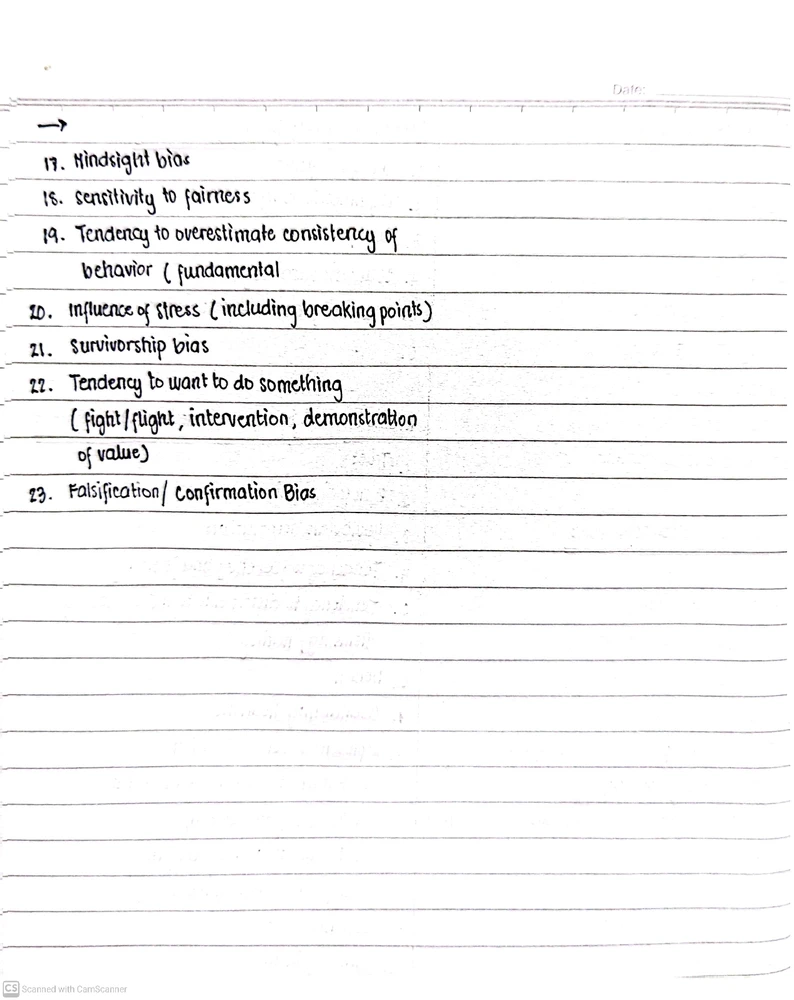 Date:
→
17. Hindsight bias
18. Sensitivity to fairness
19. Tendency to overestimate consistency of
behavior ( fundamental
20. Influence of stress (including breaking points)
21. Survivorship bias
22. Tendency to want to do something
( fight/flight, intervention, demonstration
of value)
23. Falsification/ Confirmation Bias
CS Scanned with CamScanner